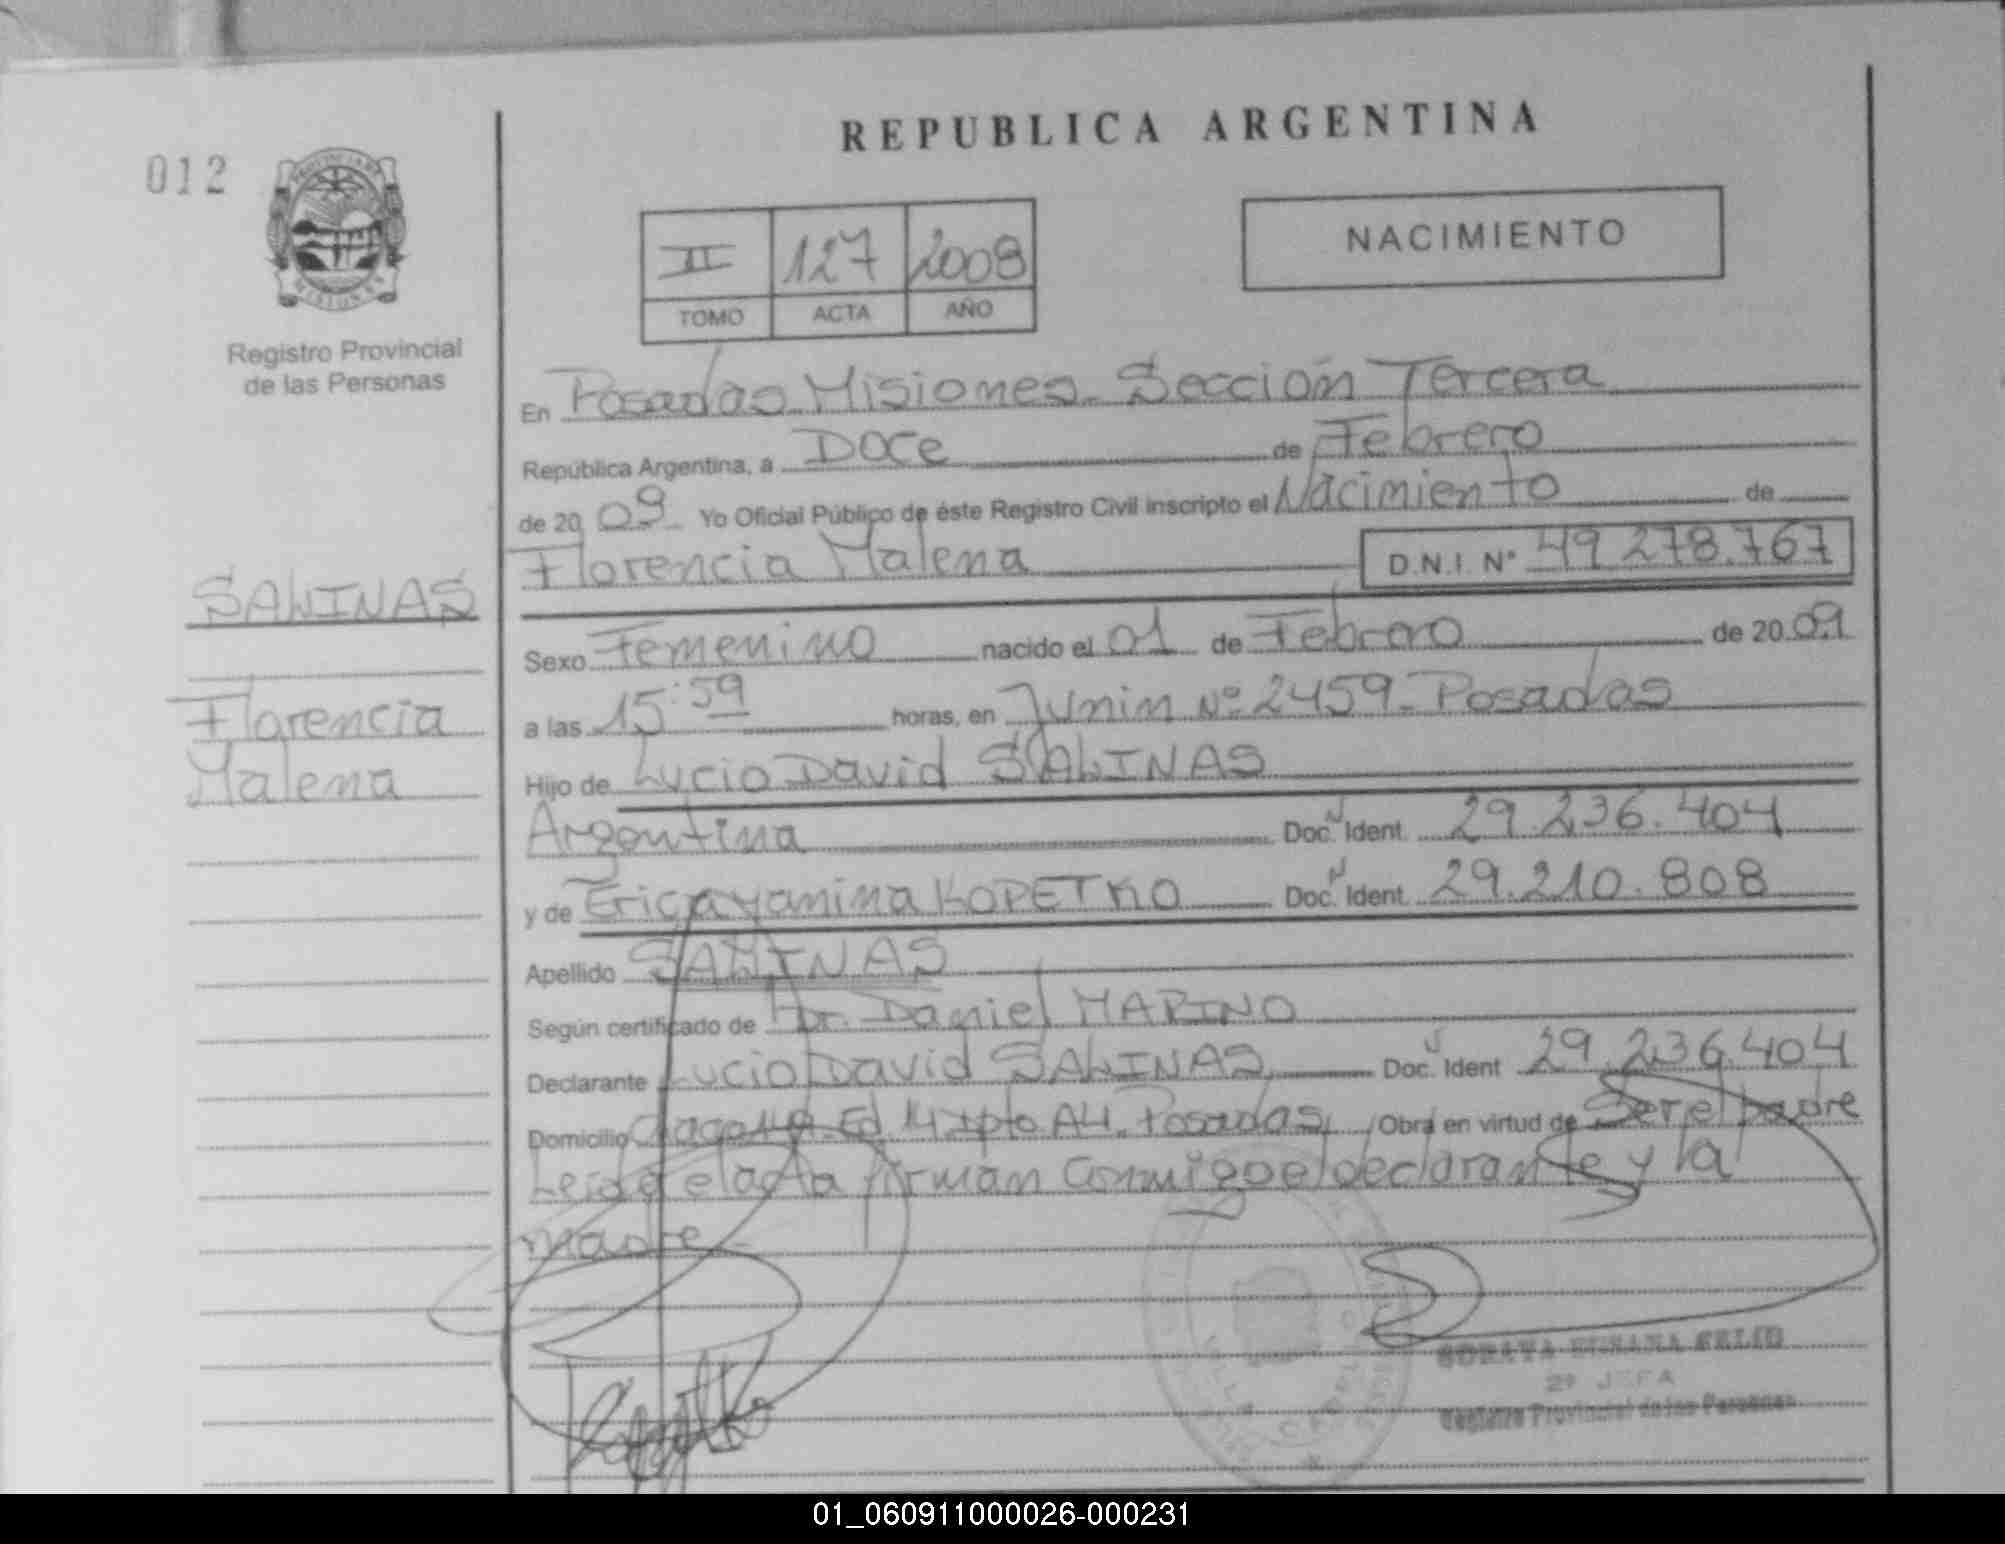 REPUBLICA ARGENTINA
012
PROVINCIA DE MISIONES
Registro Provincial
de las Personas
II 127 2008
TOMO ACTA AÑO
NACIMIENTO
En Posadas Misiones. Sección Tercera
República Argentina, a Doce de Febrero
de 20 09 Yo Oficial Público de éste Registro Civil inscripto el Nacimiento de
Florencia Malena D.N.I. Nº 49.278.767
SALINAS
Florencia
Malena
Sexo Femenino nacido el 01 de Febrero de 20 09
a las 15:59 horas, en Junin Nº 2459 - Posadas
Hijo de Lucio David SALINAS
Argentina Doc. Ident. 29.236.404
y de Erica yanina KOPETKO Doc. Ident. 29.210.808
Apellido SALINAS
Según certificado de Dr. Daniel MARINO
Declarante Lucio David SALINAS Doc. Ident 29.236.404
Domicilio Ed. 14 Dpto A4. Posadas Obra en virtud de Ser el padre
Leida el acta firman Conmigo el declarante y la
madre.-
2º JEFA
Registro Provincial de las Personas
01_060911000026-000231